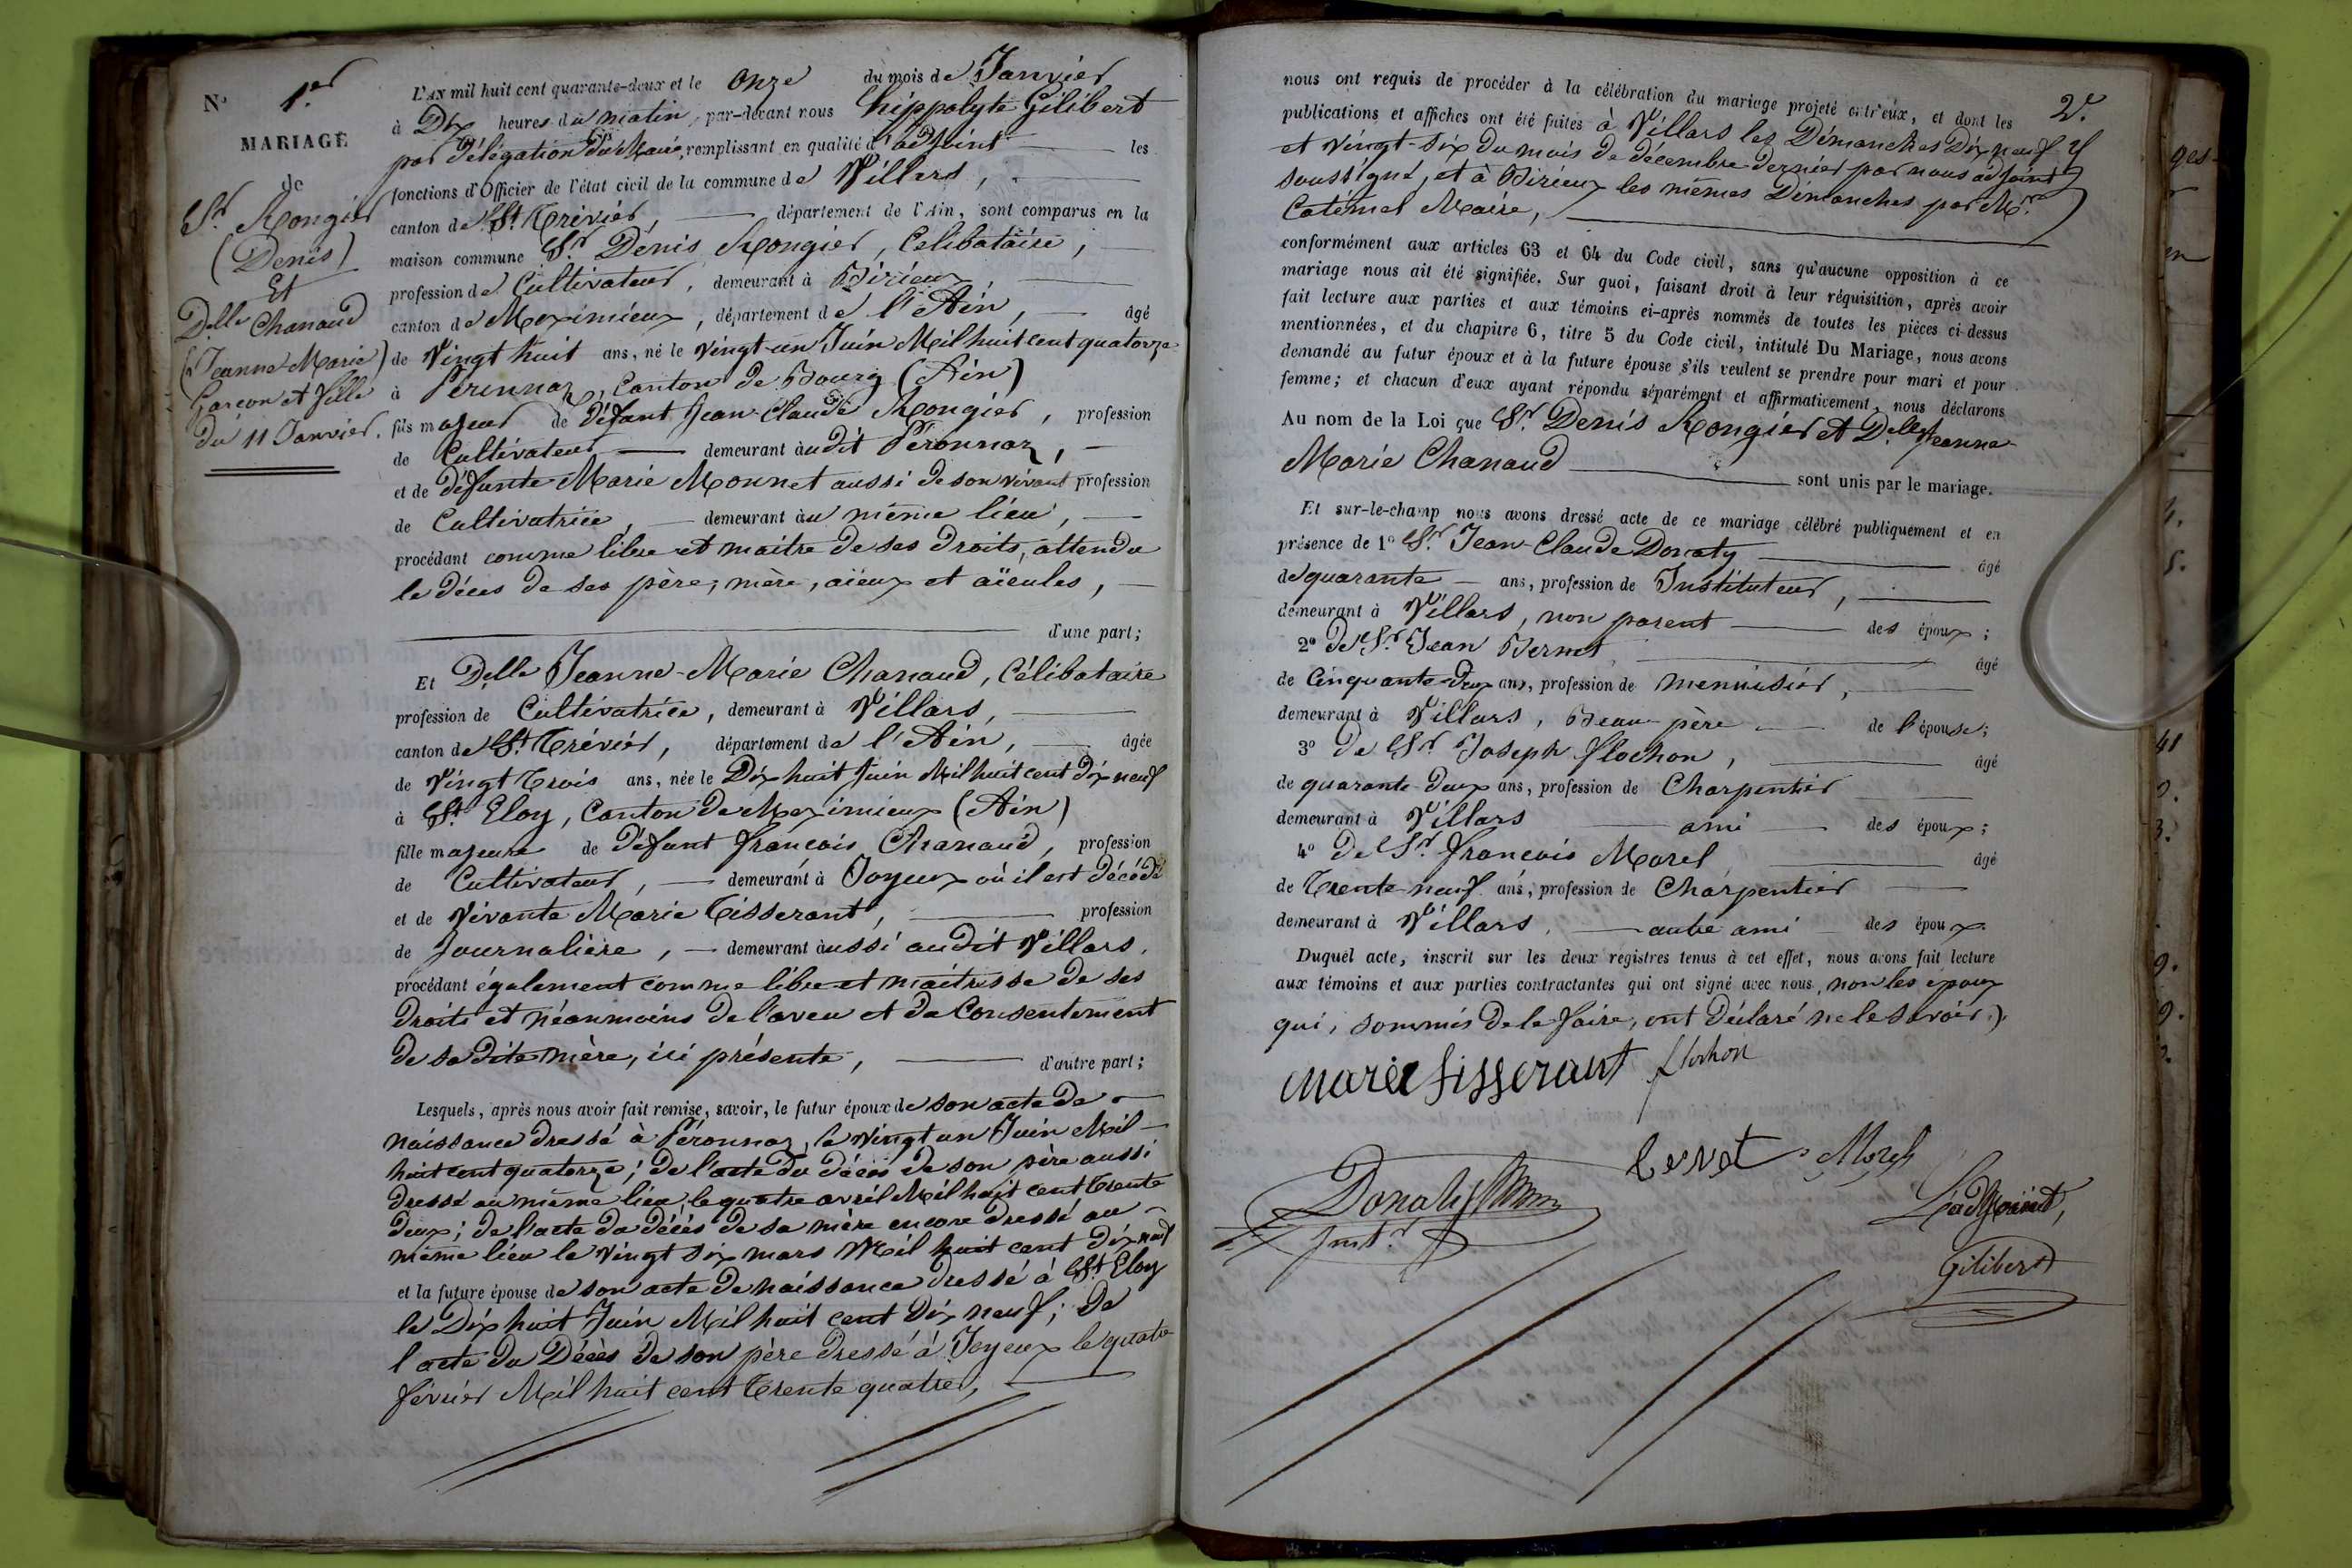 N° 1.er
MARIAGE
de
Sr. Rongier
(Denis)
Et
Delle Chanaud
(Jeanne-Marie)
Garçon et fille
du 11 Janvier.
L'AN mil huit cent quarante-deux et le onze du mois de Janvier
à Dix heures du matin, par-devant nous hippolyte Gilibert
par délégation du Maire, remplissant en qualité d'adjoint les
fonctions d'Officier de l'état civil de la commune de Villars,
canton de St. Trévier, département de l'Ain, sont comparus en la
maison commune Sr. Dénis Rongier, Célibataire,
profession de Cultivateur, demeurant à Birieux
canton de Meximieux, département de l'Ain, âgé
de Vingt huit ans, né le vingt-un Juin Mil huit cent quatorze
à Péronnaz, Canton de Bourg (Ain)
fils majeur de défunt Jean-Claude Rongier, profession
de Cultivateur, demeurant audit Péronnaz,
et de défunte Marie Monnet aussi de son vivant profession
de Cultivatrice, demeurant au même lieu,
procédant comme libre et maitre de ses droits, attendu
le décès de ses père, mère, aïeux et aïeules,
d'une part;
Et Delle Jeanne-Marie Chanaud, Célibataire
profession de Cultivatrice, demeurant à Villars,
canton de St. Trévier, département de l'Ain, âgée
de Vingt Trois ans, née le Dix huit Juin Mil huit cent dix neuf
à St. Eloy, Canton de Meximieux (Ain)
fille majeure de défunt françois Chanaud, profession
de Cultivateur, demeurant à Joyeux où il est décédé
et de Vivante Marie Tisserant, profession
de Journalière, demeurant aussi audit Villars.
procédant également comme libre et maitresse de ses
droits et néanmoins de l'aveu et du Consentement
de sa dite mère, ici présente, d'autre part;
Lesquels, après nous avoir fait remise, savoir, le futur époux de son acte de
naissance dressé à Péronnaz, le vingt un Juin Mil
huit cent quatorze; de l'acte du décès de son père aussi
dressé au même lieu, le quatre avril Mil huit cent trente
deux; de l'acte du décès de sa mère encore dressé au
même lieu le vingt six mars Mil huit cent dix neuf
et la future épouse de son acte de naissance dressé à St. Eloy
le Dix huit Juin Mil huit cent Dix neuf; de
l'acte du Décès de son père dressé à Joyeux le quatre
février Mil huit cent Trente quatre,
2.e
nous ont requis de procéder à la célébration du mariage projeté entr'eux, et dont les
publications et affiches ont été faites à Villars les Dimanches Dix neuf
et vingt-six du mois de décembre dernier par nous adjoint
soussigné, et à Birieux les mêmes Dimanches par Mr.
Maire,
conformément aux articles 63 et 64 du Code civil, sans qu'aucune opposition à ce
mariage nous ait été signifiée. Sur quoi, faisant droit à leur réquisition, après avoir
fait lecture aux parties et aux témoins ci-après nommés de toutes les pièces ci-dessus
mentionnées, et du chapitre 6, titre 5 du Code civil, intitulé Du Mariage, nous avons
demandé au futur époux et à la future épouse s'ils veulent se prendre pour mari et pour
femme; et chacun d'eux ayant répondu séparément et affirmativement, nous déclarons
Au nom de la Loi que Sr. Denis Rongier et Delle Jeanne-
Marie Chanaud sont unis par le mariage.
Et sur-le-champ nous avons dressé acte de ce mariage célébré publiquement et en
présence de 1° Sr. Jean-Claude Donaty âgé
de quarante ans, profession de Instituteur,
demeurant à Villars, non parent des époux;
2° de Sr. Jean Bernet âgé
de Cinquante-deux ans, profession de menuisier,
demeurant à Villars, Beau-père de l'épouse;
3° de Sr Joseph flochon, âgé
de quarante-deux ans, profession de Charpentier
demeurant à Villars ami des époux;
4° de Sr. françois Morel âgé
de Trente-neuf ans, profession de Charpentier
demeurant à Villars, autre ami des époux.
Duquel acte, inscrit sur les deux registres tenus à cet effet, nous avons fait lecture
aux témoins et aux parties contractantes qui ont signé avec nous, non les époux
qui, sommés de le faire, ont déclaré ne le savoir.
marie tisserant flochon
bernet Morel
Donaty
Instr.
L'adjoint,
Gilibert